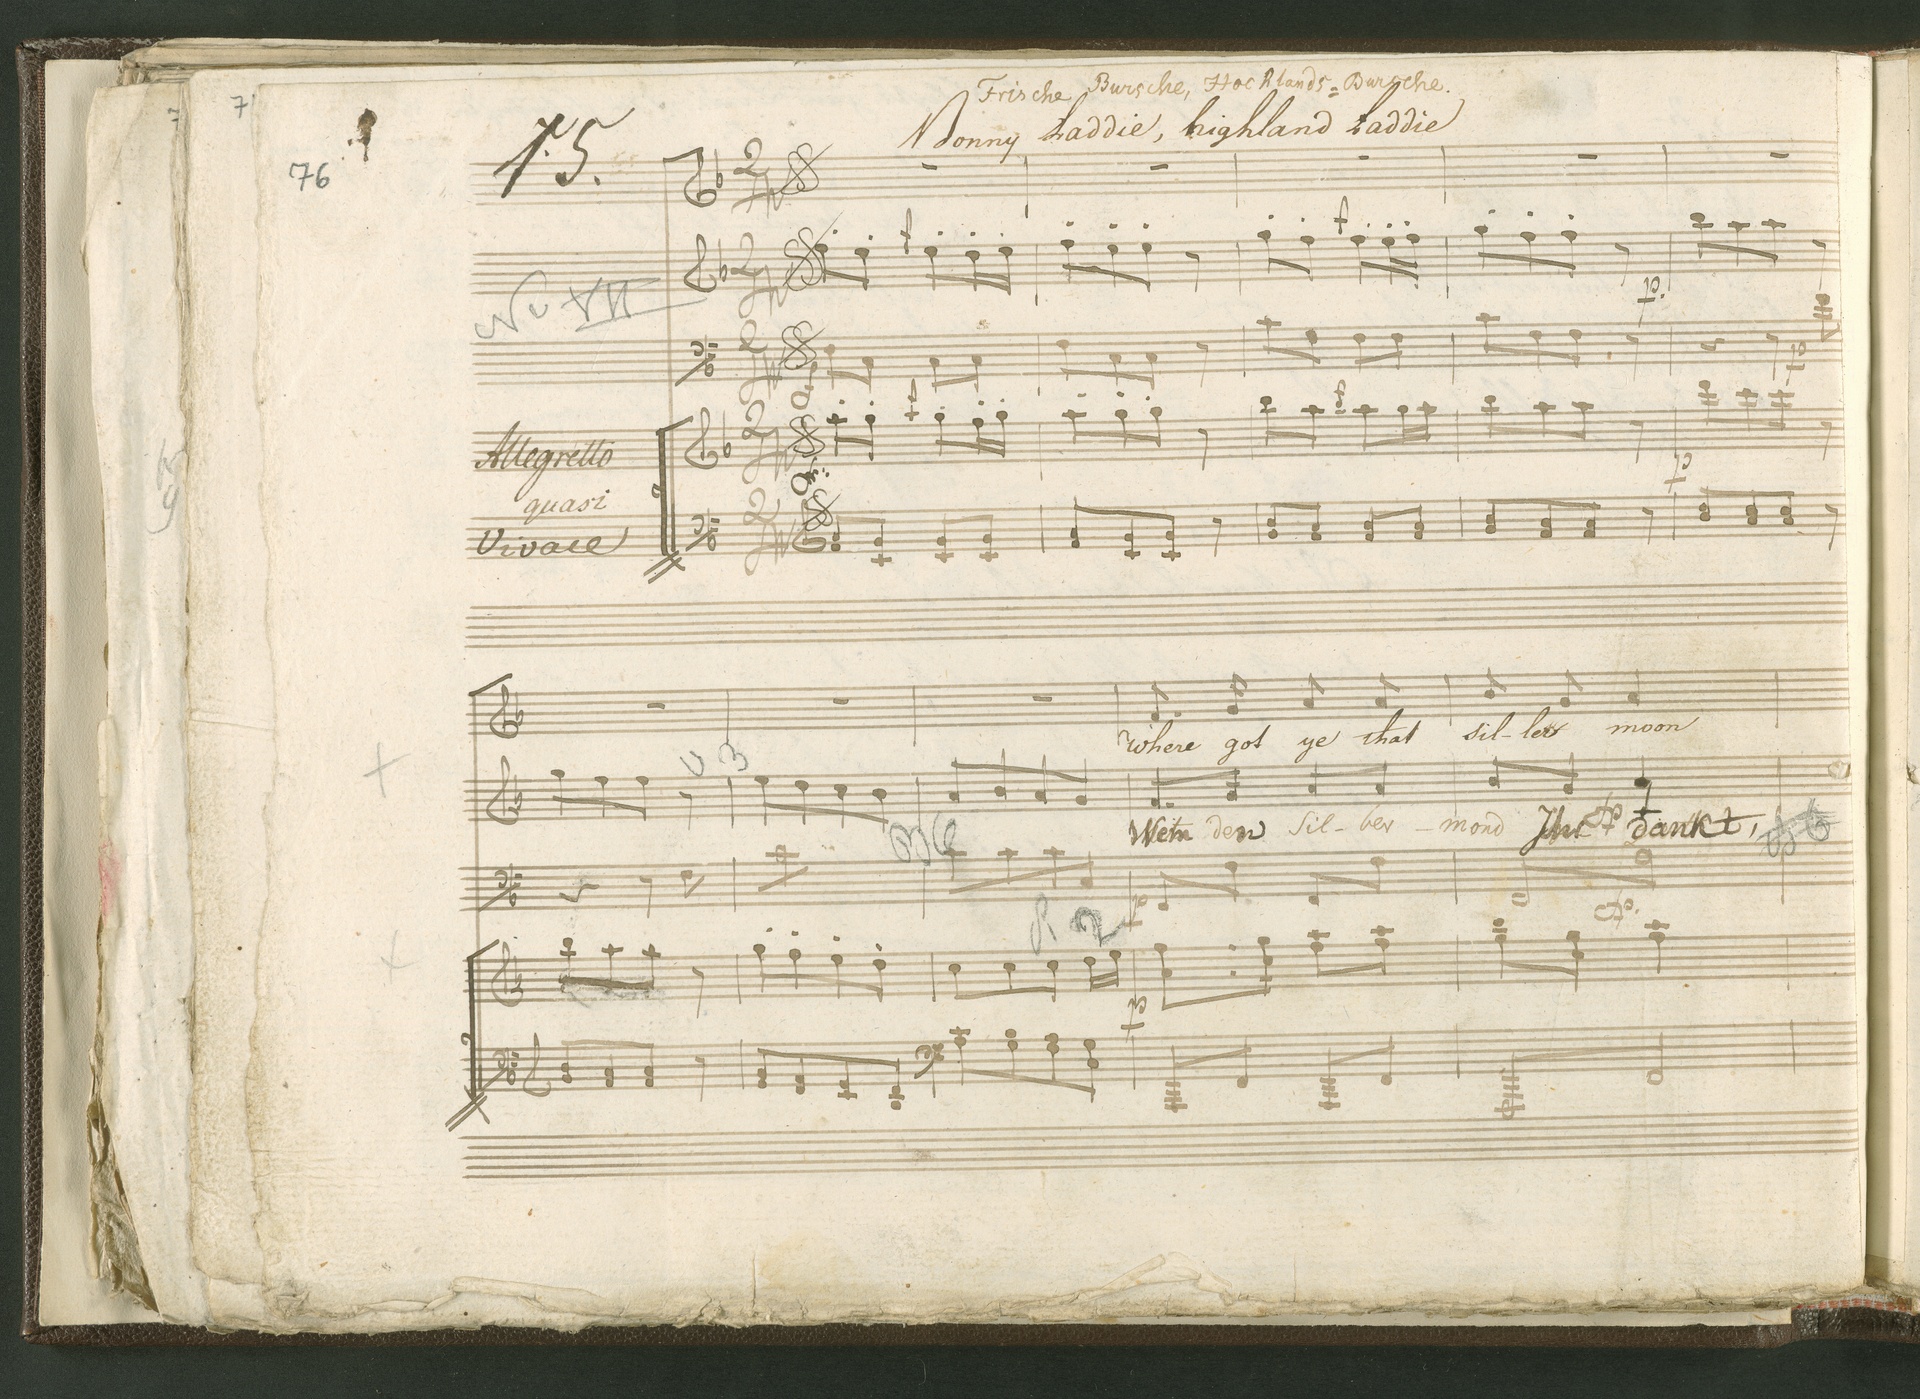 Frische Bursche, Hochlands=Bursche.
Bonny Laddie, highland Laddie
15.
76
No VII
Allegretto
quasi
Vivace
Where got ye that sil-ler moon
Wem den Sil-ber-mond Ihr dankt,